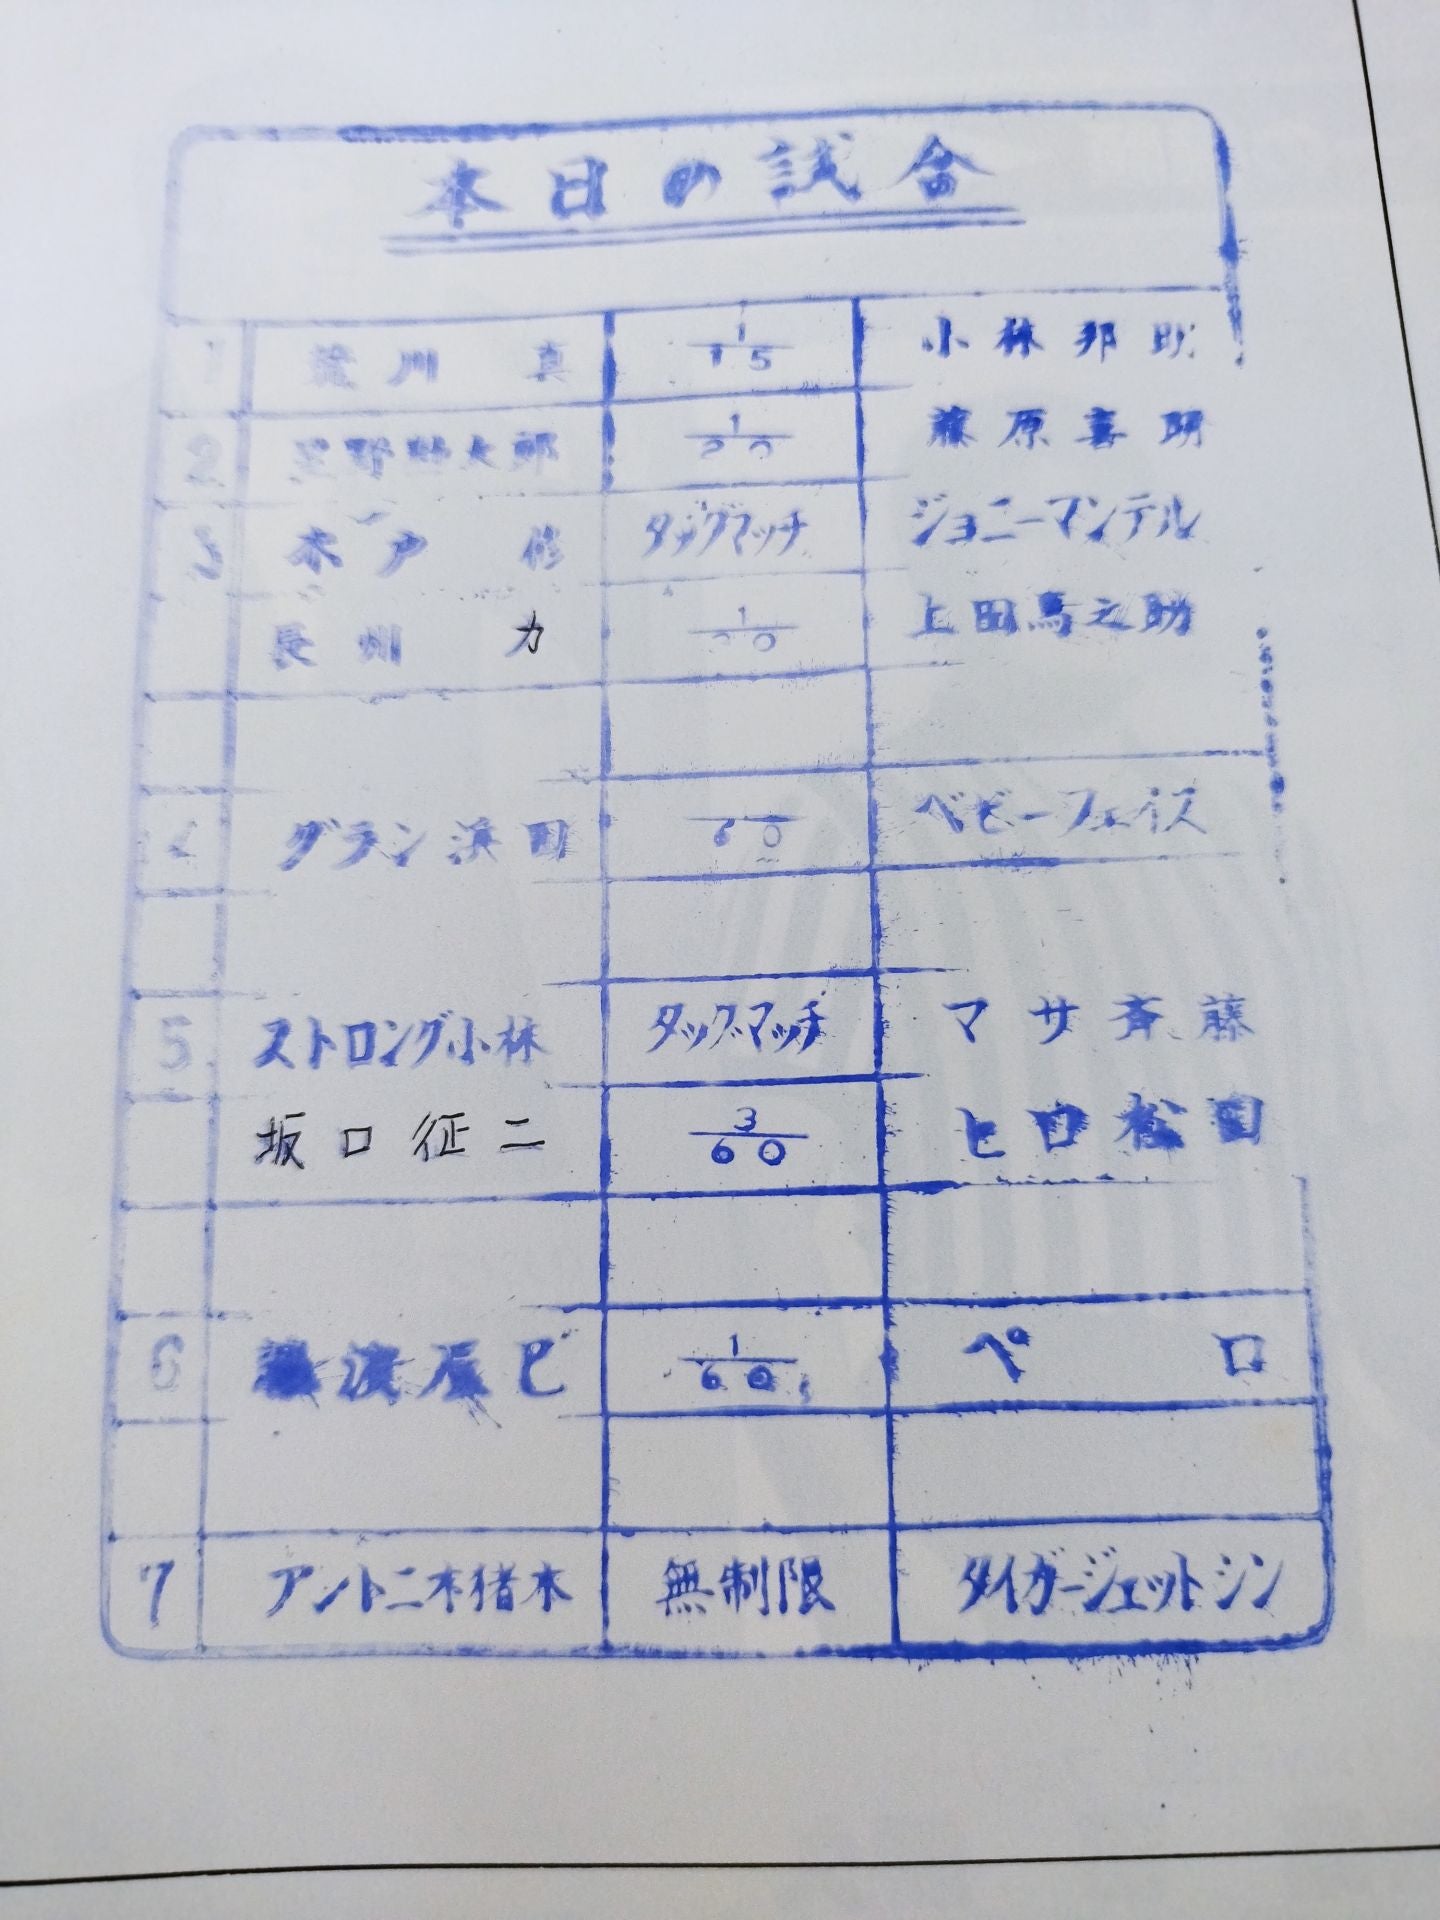 本日の試合
1 荒川 真 1/15 小林邦昭
2 星野勘太郎 1/20 藤原喜明
3 木戸 修 タッグマッチ ジョニーマンテル
長州 力 1/20 上田馬之助
4 グラン浜田 60 ベビーフェイス
5 ストロング小林 タッグマッチ マサ斉藤
坂口征二 3/60 ヒロ松田
6 藤波辰巳 1/60 ペロ
7 アントニオ猪木 無制限 タイガージェットシン